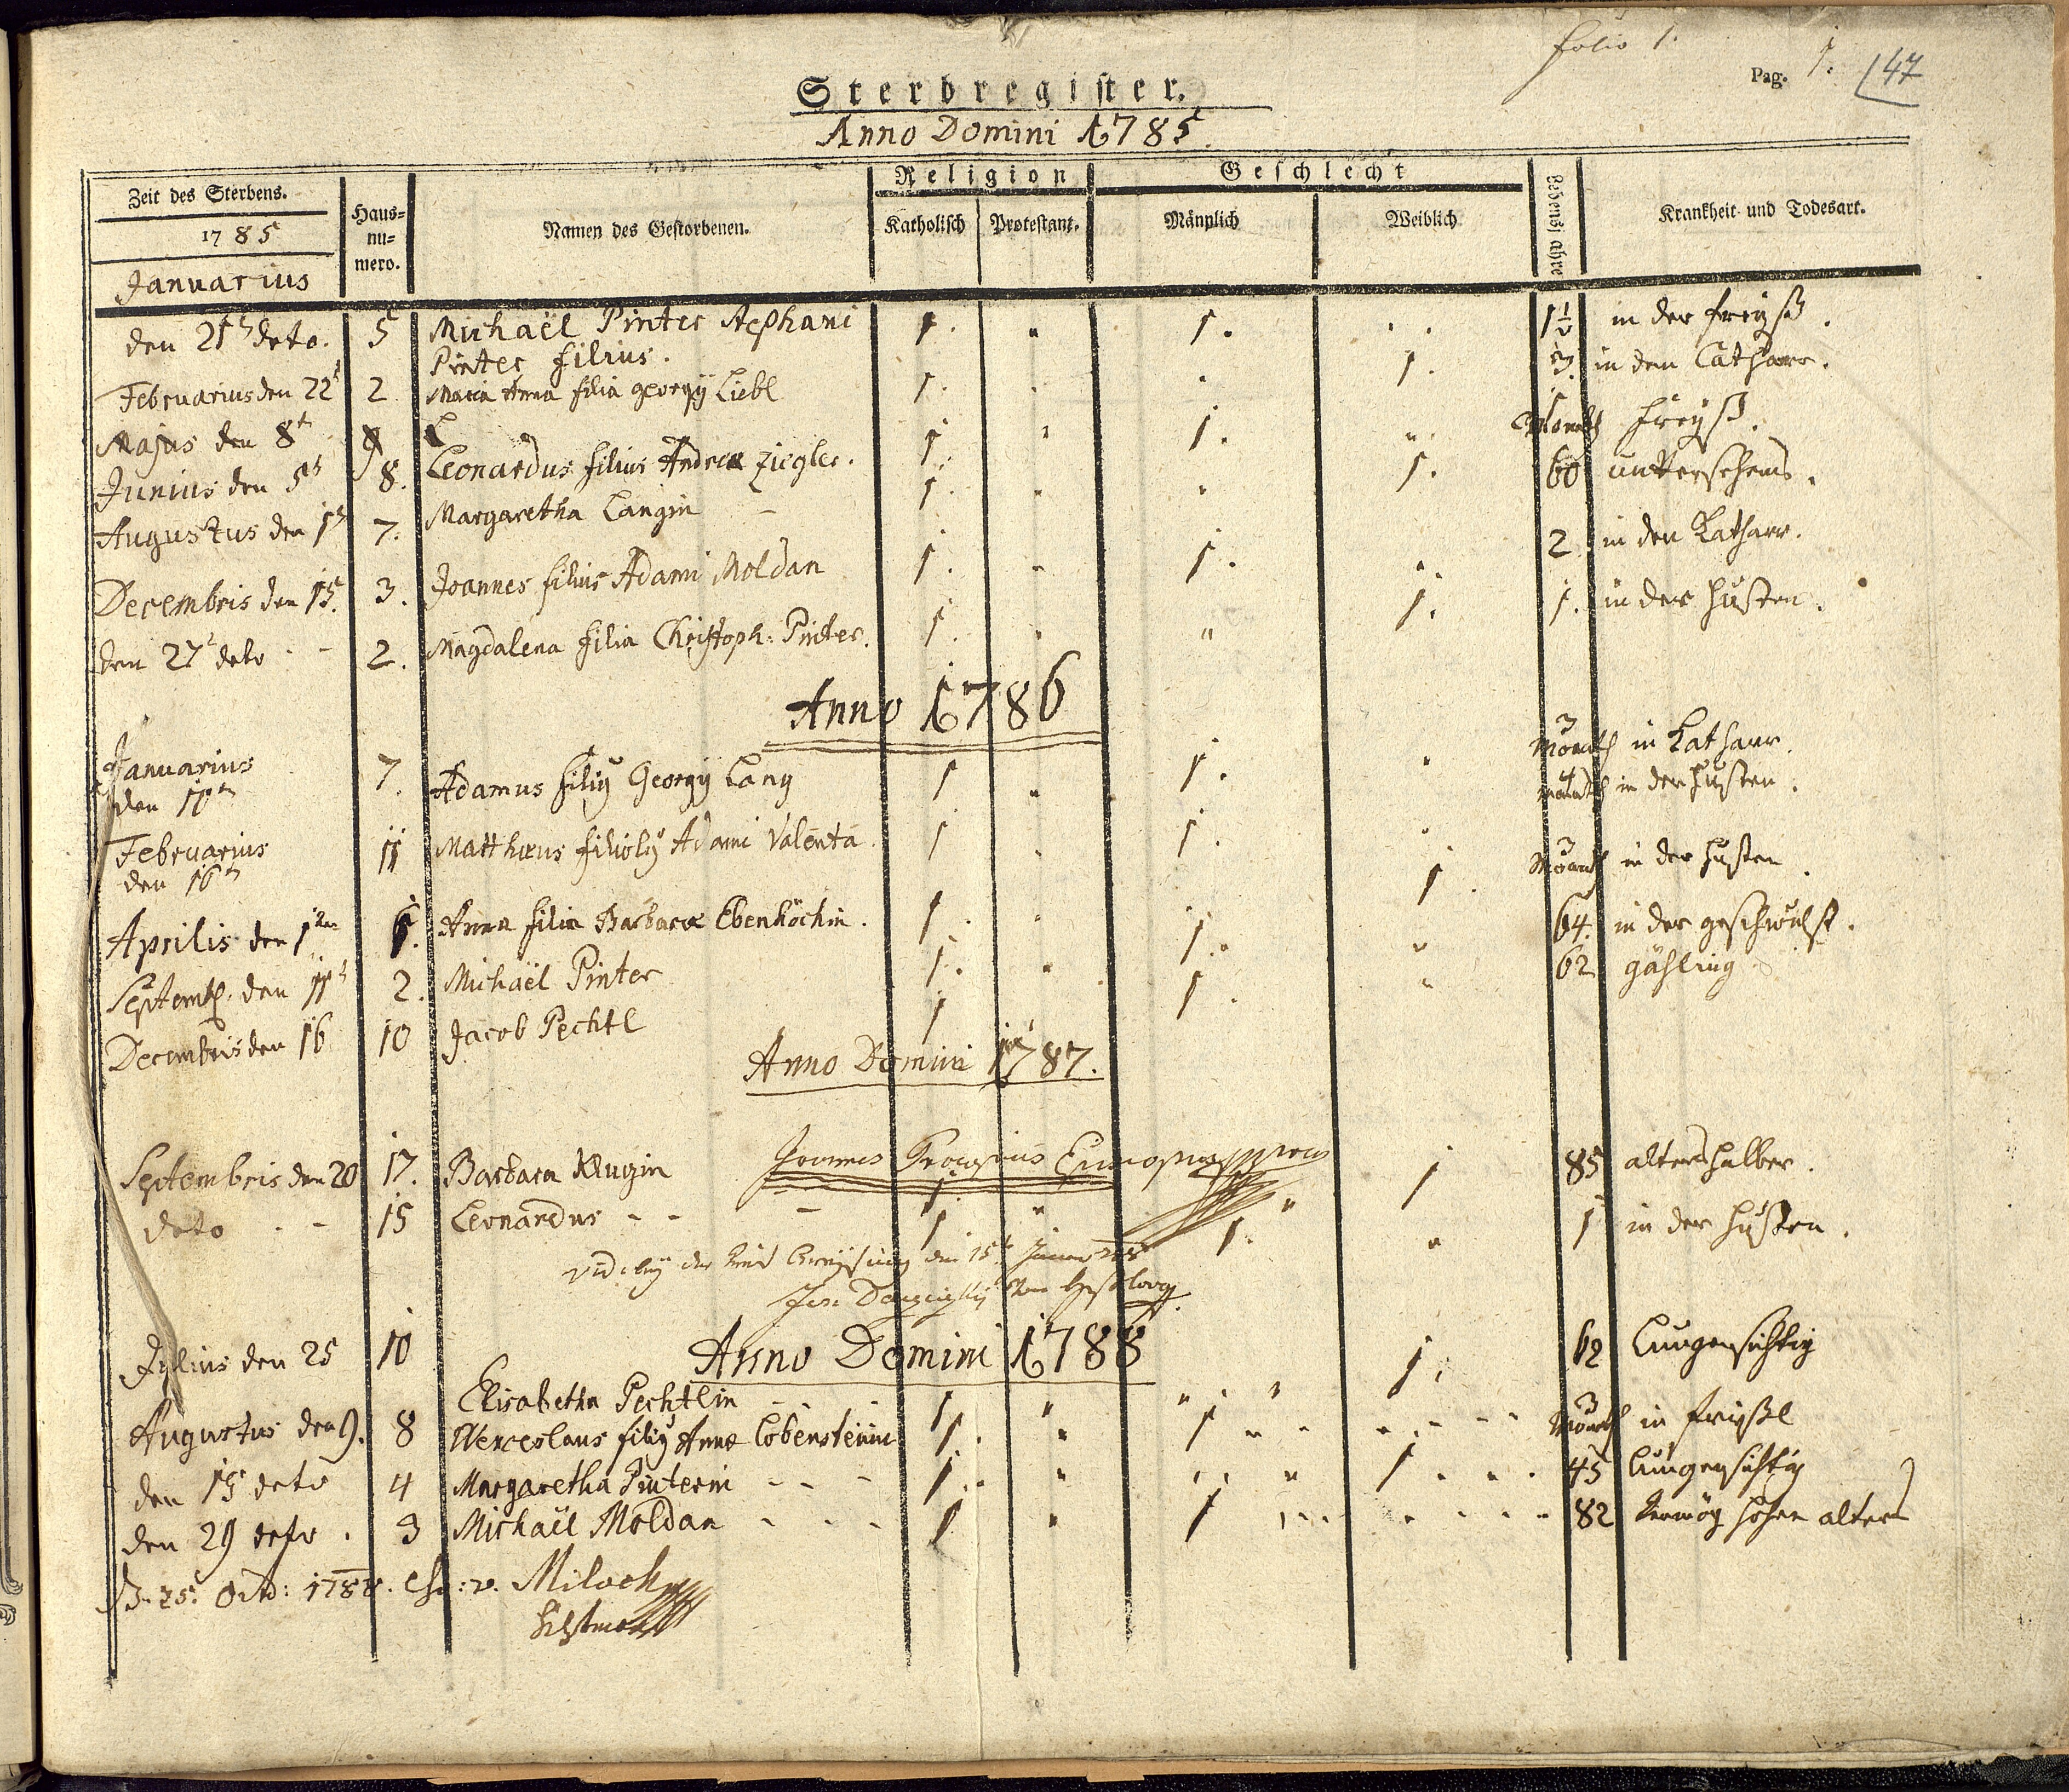 folio 1.
Pag. 1. 47
Sterbregister.
Anno Domini 1785.
Zeit des Sterbens.
1785
Januarius
Haus=
nu=
mero.
Namen des Gestorbenen.
Religion
Katholisch Protestant.
Geschlecht
Männlich Weiblich
Lebensjahre
Krankheit und Todesart.
den 21 deto. 5 Michaël Pinter Stephani 1. " 1. . . 1½ in der Freyß.
Pinter filius.
Februarius den 22 2 Maria Anna filia Georgÿ Liebl 1. . . 1. 3. in den Catharr.
Majus den 8t 9 L
8. Leonardus filius Andreæ Ziegler. 1. " 1. " Monath Freyß.
Junius den 5t
Augustus den 1t 7. Margaretha Langin 1. " " 1. 60
Decembris den 15. 3. Joannes filius Adami Moldan 1. " 1. " 2 in den Katharr.
den 27t deto - - 2. Magdalena filia Christoph: Pinter. 1. " " 1. 1. in der Husten.
Anno 1786
Januarius
den 10tn 7. Adamus filiꝰ Georgÿ Lang 1 " 1. " 3 Monath in Katharr.
Februarius
den 16tn 11 Matthæus filiolꝰ Adami Valenta. 1 . 1. " 4 Monath in der Husten.
Aprilis den 1ten 6. Anna filia Barbaræ Ebenhöchin. 1. " " 1. 3 Monath in der Husten.
Septemb. den 11t 2. Michaël Pinter 1. " 1. " 64. in der geschwulst.
Decembris den 16 10 Jacob Pechtl 1 1. " 62 gähling
Anno Domini 1787.
Joannes
Septembris den 20 17. Barbara Klugin 1. " " 1 85 alters halber.
deto - - 15 Leonardus - - - 1 1. " 1 in der Husten.
den 15t
Anno Domini 1788
Julius den 25 10 Elisabetha Pechtlin 1 " " 1. 62 Lungensichtig
Augustus den 9. 8 Wenceslaus filiꝰ Annæ Lobensteinin 1. " 1 " 3 Monath in Freyßl
den 15 deto 4 Margaretha Pinterin - - - 1. " " 1 45 Lungensichtig
den 29 deto. 3 Michaël Moldan - - - 1 " 1 82 Vermög hohen alters
25. 1788. v.